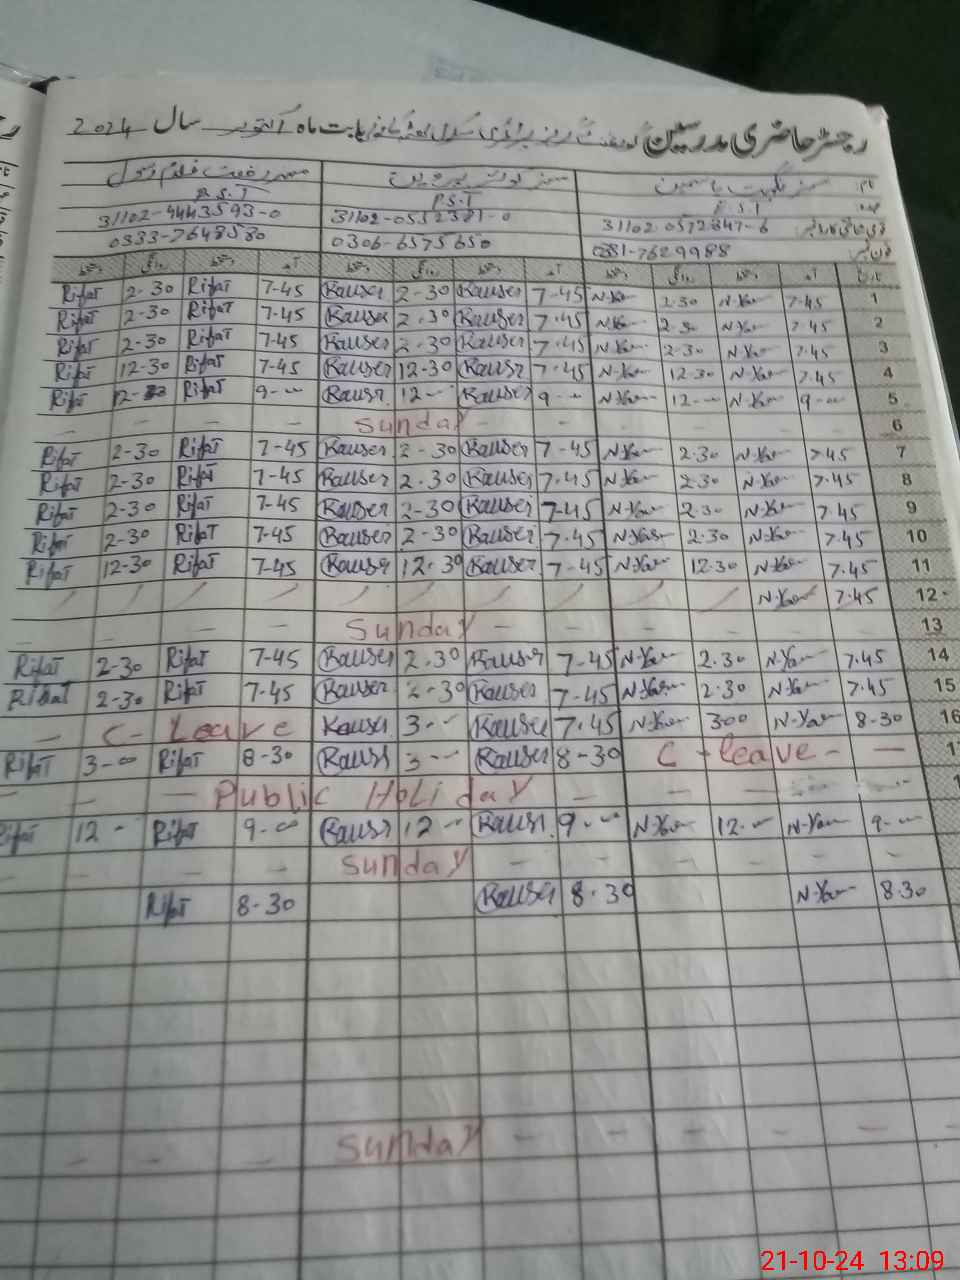 رجسٹر حاضری مدرسین گورنمنٹ گرلز پرائمری سکول بابت ماہ اکتوبر سال 2024
نام: مسز نگہت یاسمین مسز کوثر پروین مسز رفعت غلام رسول
عہدہ: P.S.T P.S.T P.S.T
قومی شناختی کارڈ نمبر: 31102-0572847-6 31102-0552381-0 31102-4443593-0
فون نمبر 0331-7629988 0306-6575650 0333-7648580
تاریخ آمد دستخط روانگی دستخط آمد دستخط روانگی دستخط آمد دستخط روانگی دستخط
Rifat 2-30 Rifat 7-45 Kauser 2-30 Kauser 7-45 N-Yas 2.30 N-Yas 7.45 1
Rifat 2-30 Rifat 7-45 Kauser 2.30 Kauser 7.45 N-Yas 2.30 N-Yas 7.45 2
Rifat 2-30 Rifat 7-45 Kauser 2.30 Kauser 7.45 N-Yas 2.30 N-Yas 7.45 3
Rifat 12-30 Rifat 7-45 Kauser 12-30 Kauser 7.45 N-Yas 12.30 N-Yas 7.45 4
Rifat 12- Rifat 9-00 Kauser 12-- Kauser 9-00 N-Yas 12-00 N-Yas 9-00 5
– – – – Sunday – – – – – – 6
Rifat 2-30 Rifat 7-45 Kauser 2-30 Kauser 7-45 N-Yas 2.30 N-Yas 7.45 7
Rifat 2-30 Rifat 7-45 Kauser 2.30 Kauser 7.45 N-Yas 2.30 N-Yas 7.45 8
Rifat 2-30 Rifat 7-45 Kauser 2-30 Kauser 7-45 N-Yas 2.30 N-Yas 7.45 9
Rifat 2-30 Rifat 7-45 Kauser 2-30 Kauser 7.45 N-Yas 2.30 N-Yas 7.45 10
Rifat 12-30 Rifat 7-45 Kauser 12.30 Kauser 7-45 N-Yas 12.30 N-Yas 7.45 11
/ / / / / / / / / / N-Yas 7.45 12
– – – – Sunday – – – – – – 13
Rifat 2-30 Rifat 7-45 Kauser 2.30 Kauser 7-45 N-Yas 2.30 N-Yas 7.45 14
Rifat 2-30 Rifat 7-45 Kauser 2-30 Kauser 7-45 N-Yas 2.30 N-Yas 7.45 15
– C- Leave Kauser 3-- Kauser 7.45 N-Yas 300 N-Yas 8-30 16
Rifat 3-00 Rifat 8-30 Kauser 3-- Kauser 8-30 C-leave- – 1
– – – Public Holiday – – – – 1
Rifat 12- Rifat 9-00 Kauser 12-- Kauser 9-00 N-Yas 12-00 N-Yas 9-00
– – – – Sunday – – – – – –
Rifat 8-30 Kauser 8-30 N-Yas 8.30
– – – Sunday – – – – – –
21-10-24 13:09